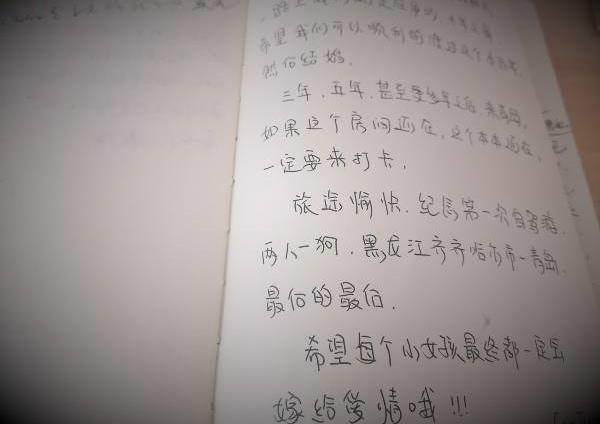 希望我们可以顺利的度过这个
然后结婚.
三年.五年.甚至更多年之后.来青岛.
如果这个房间还在.这个本本还在.
一定要来打卡.
旅途愉快.纪念第一次自驾游.
两人一狗.黑龙江齐齐哈尔市-青岛.
最后的最后.
希望每个小女孩最终都一定会
嫁给爱情哦!!!